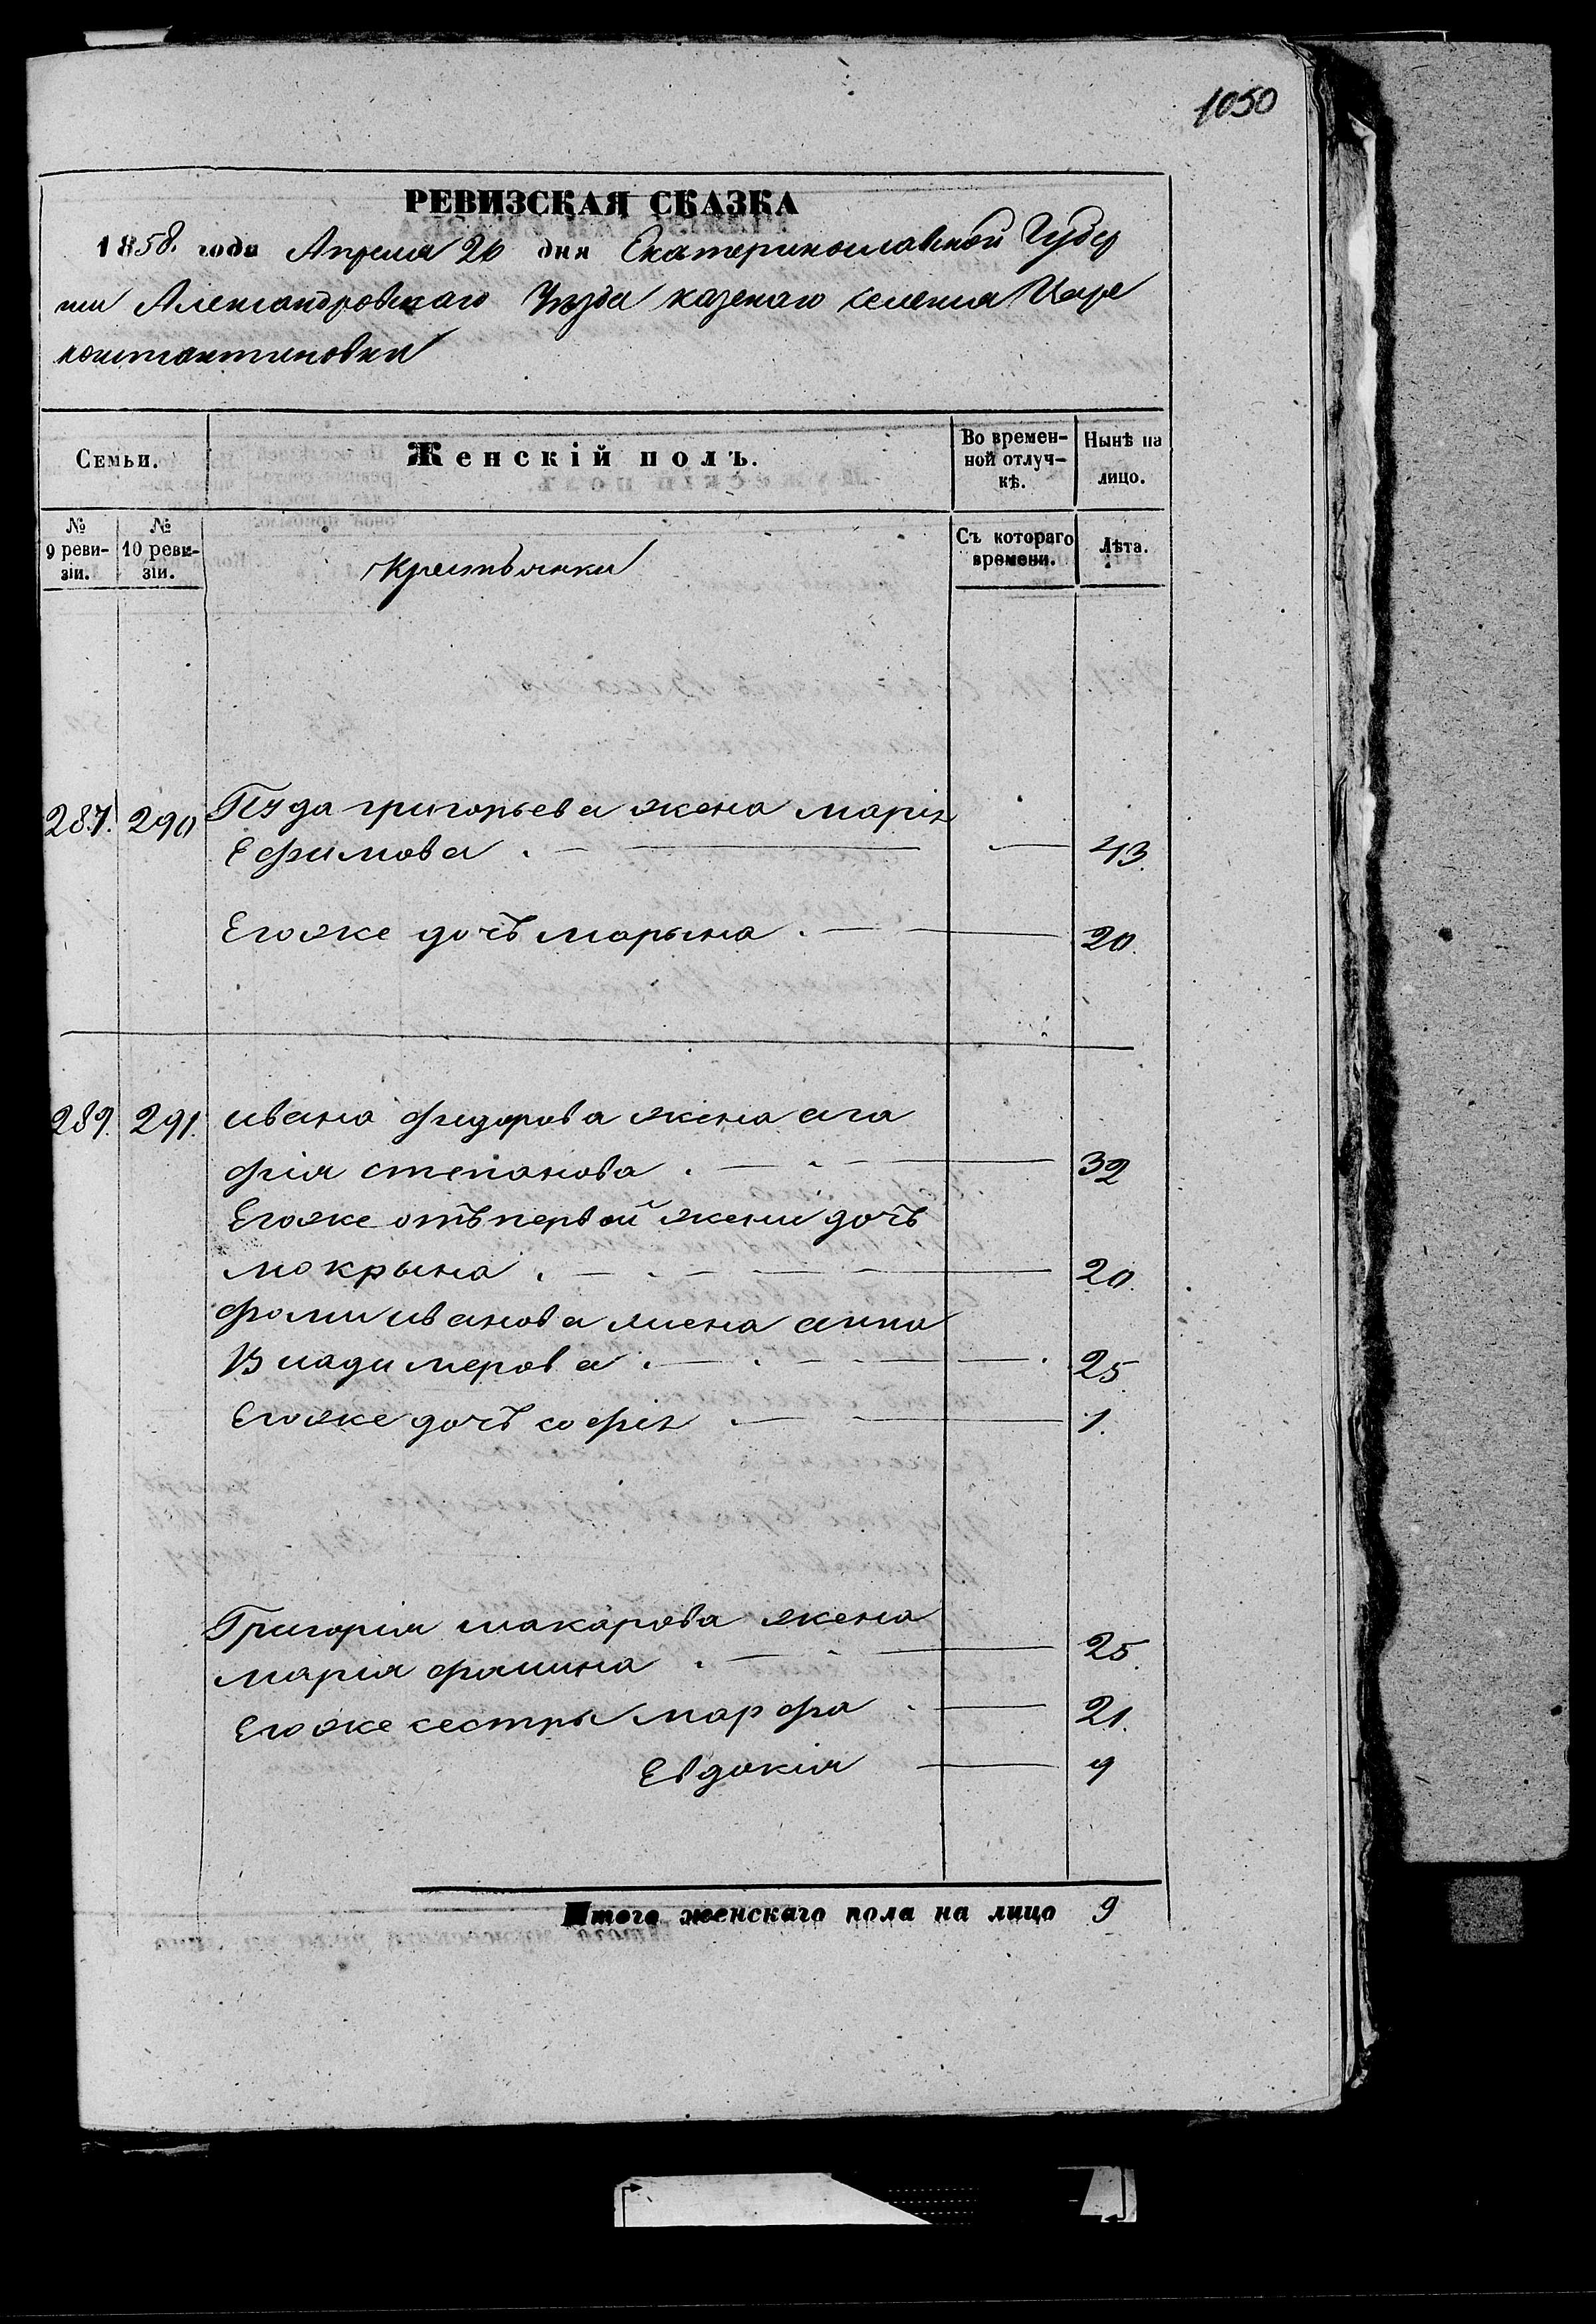 1050
РЕВИЗСКАЯ СКАЗКА
1858. года Апреля 26 дня Екатеринославской Губер
нии Александровскаго Уезда казенаго селения Царе
константиновки
Семьи.
Женскій полъ.
Во времен-
ной отлуч-
кѣ.
Нынѣ на
лицо.
№
9 реви-
зіи.
№
10 реви-
зіи.
Крестьянки
Съ котораго
времени.
Лѣта.
287. 290 григорьева жена марія
Ефимова . — — 43.
Егоже дочь марына . — — 20.
289. 291. ивана фидорова жена ага
фия степанова . — - — 32
Егоже отъ первой жены дочь
мокрына . — . — — — 20.
фомы иванова жена анна
Владимерова . — . — — — . 25.
Егоже дочь софія . — — 1.
Григория макарова жена
мария фомина . — - — 25.
Егоже сестры марфа . — 21.
Евдокия — 9
Итого женскаго пола на лицо 9